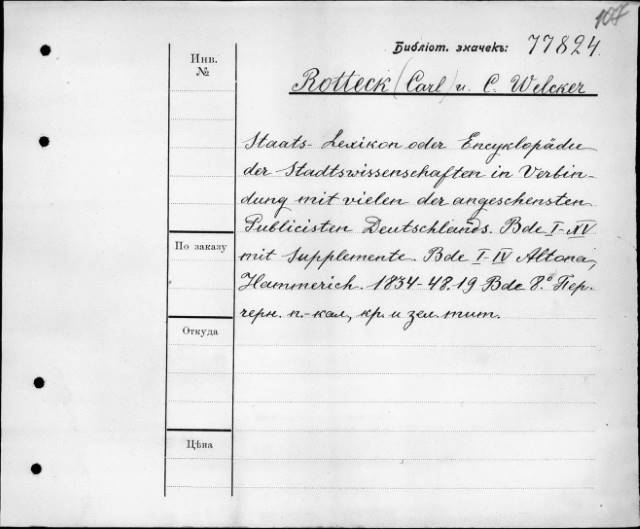 107
Библіот. значекъ: 77824.
Инв.
№
Rotteck (Carl) u. C. Welcker
Staats-Lexikon oder Encyklopädie
der Stadtswissenschaften in Verbin-
dung mit vielen der angeschensten
Publicisten Deutschlands. Bde I-XV
По заказу
mit Supplemente. Bde I-IV Altona,
Hammerich. 1834-48. 19 Bde 8.° Пер.
черн. п.-кал., кр. и зел. тит.
Откуда
Цѣна